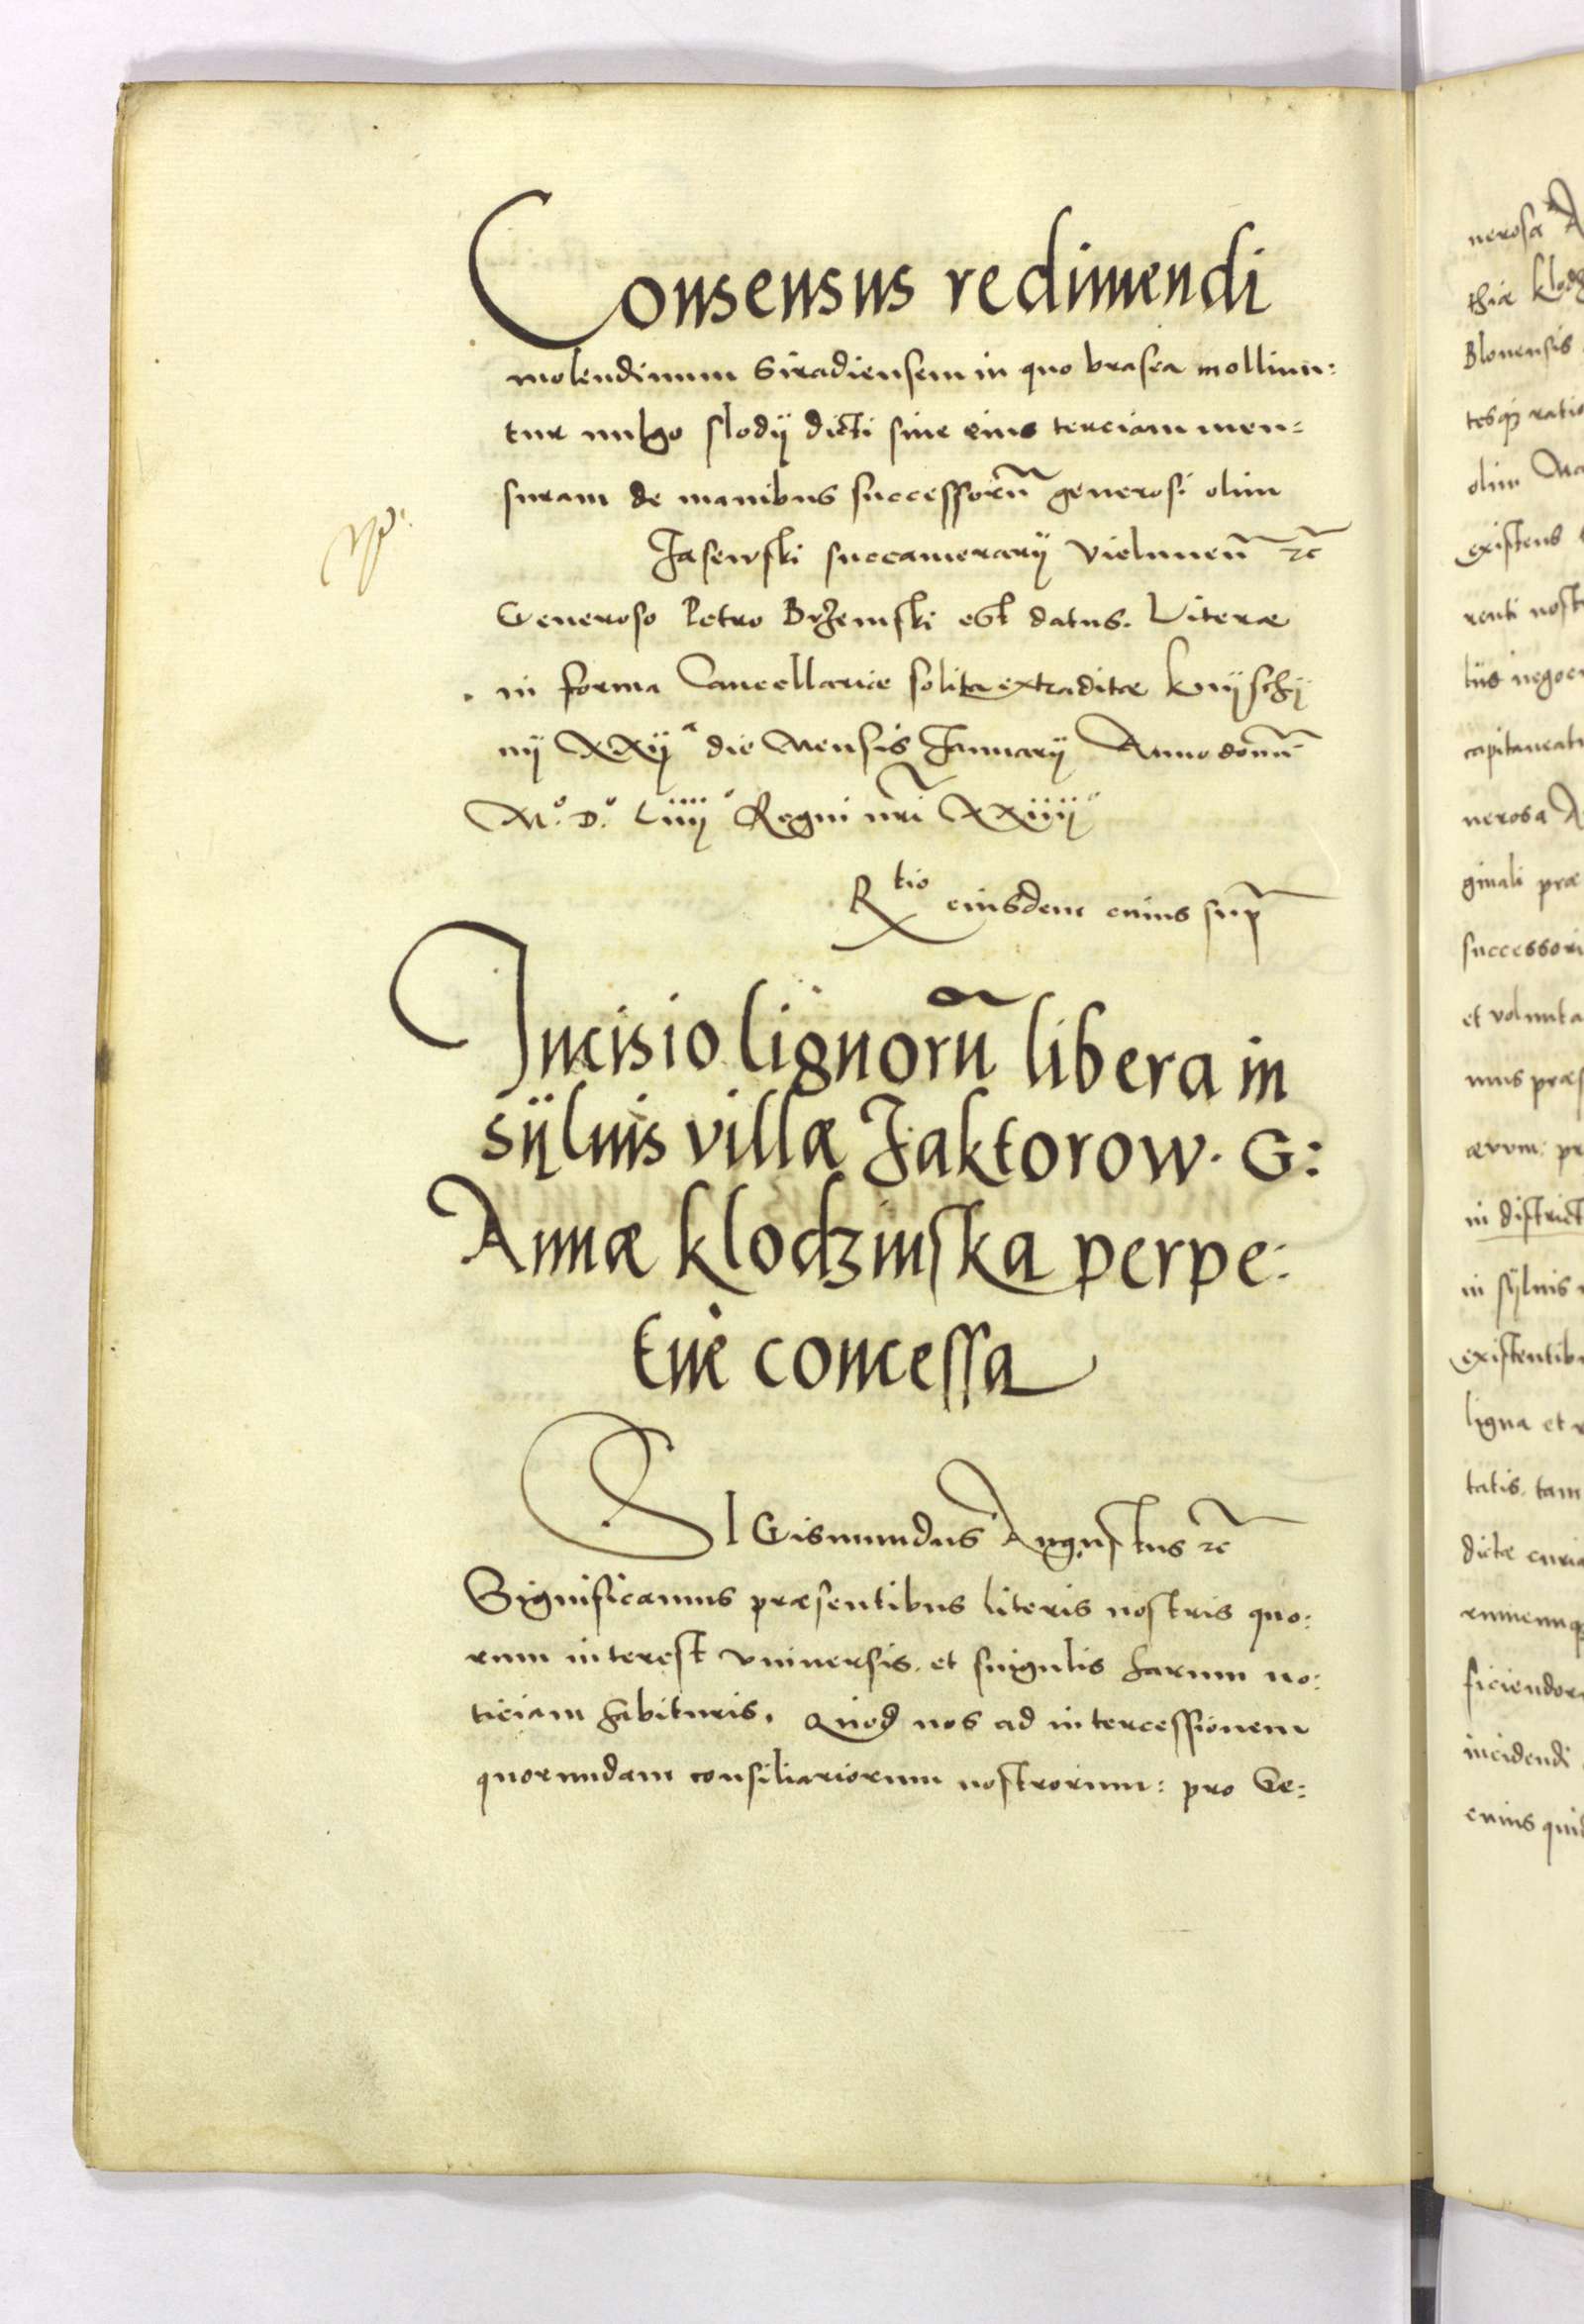 Consensus redimendi
molendinum Siradiensem in quo brasea molliun:
tur uulgo slodÿ dicti siue eius terciam men:
suram de manibus successorũ generosi olim
Jasewski succamerarÿ Vielunen̄ ꝛc̃
Generoso Petro Brzemski est datus. Literæ
in forma Cancellariæ solita extraditæ Knÿschÿ
nÿ XXIJª die Mensis Januarÿ Anno domĩ
Mº. Dº. Liiijº Regni nr̃i XXiiijº
Rtio eiusdem cuius supꝛ̃
Incisio lignorũ libera in
sÿluis villæ Jaktorow. G:
Annæ klodzinska perpe:
tue concessa
SIGismundus Augustus ꝛc̃
Significamus præsentibus literis nostris quo:
rum interest vniuersis. et singulis harum no:
ticiam habituris. Quod nos ad intercessionem
quorumdam consiliariorum nostrorum: pro Ge:
nerosa A
thiæ klodz
Blonensis
tesqȝ ratio
olim Ma
existens
renti nost
liis negoci
capitaneat
nerosa A
ginali præ
successori
et volunta
mus præs
æuum: pr
in district
in sÿluis
existentib
ligna et
tatis. tam
dictæ curiæ
ficiendor
incidendi
cuius qui